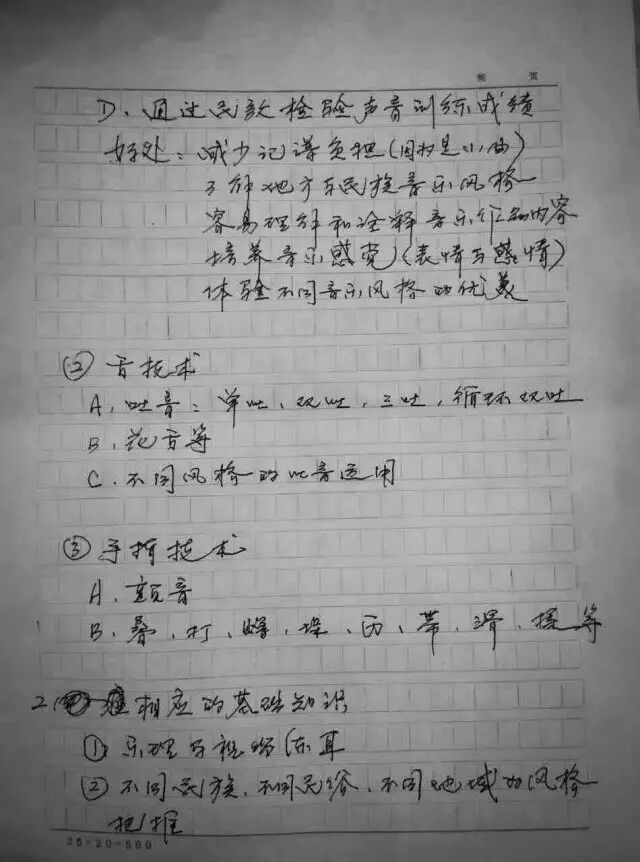 第 页
D、通过民歌检验声音训练成绩
好处：减少记谱负担（因为是小曲）
了解地方与民族音乐风格
容易理解和诠释音乐作品内容
培养音乐感觉（表情与感情）
体验不同音乐风格的优美
② 舌技术
A、吐音：单吐、双吐、三吐，循环双吐
B、花舌等
C、不同风格的吐音运用
③ 手指技术
A、颤音
B、叠、打、赠、垛、历、带、滑、揉等
2 相应的基础知识
① 乐理与视唱练耳
② 不同民族、不同民俗、不同地域的风格
把握
25×20=500